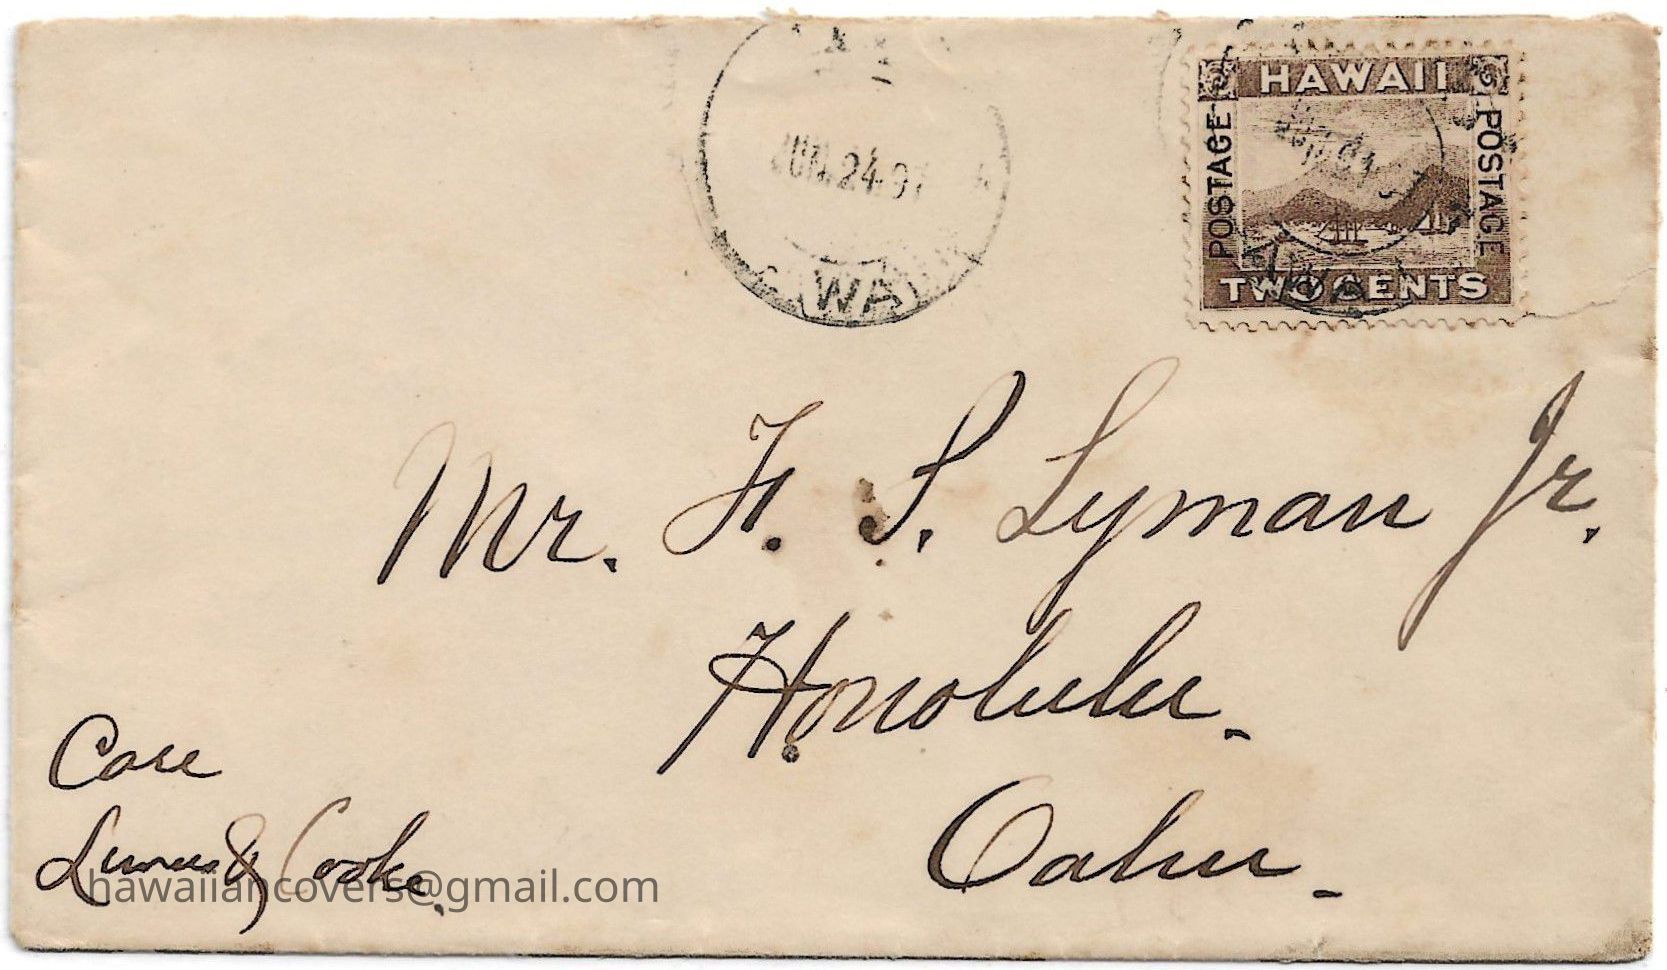 JUN. 24. 97
HAWAII
HAWAII
POSTAGE
POSTAGE
TWO CENTS
Mr. F. S. Lyman Jr.
Honolulu.
Oahu.
Care
& Cooke.
hawaiiancovers@gmail.com